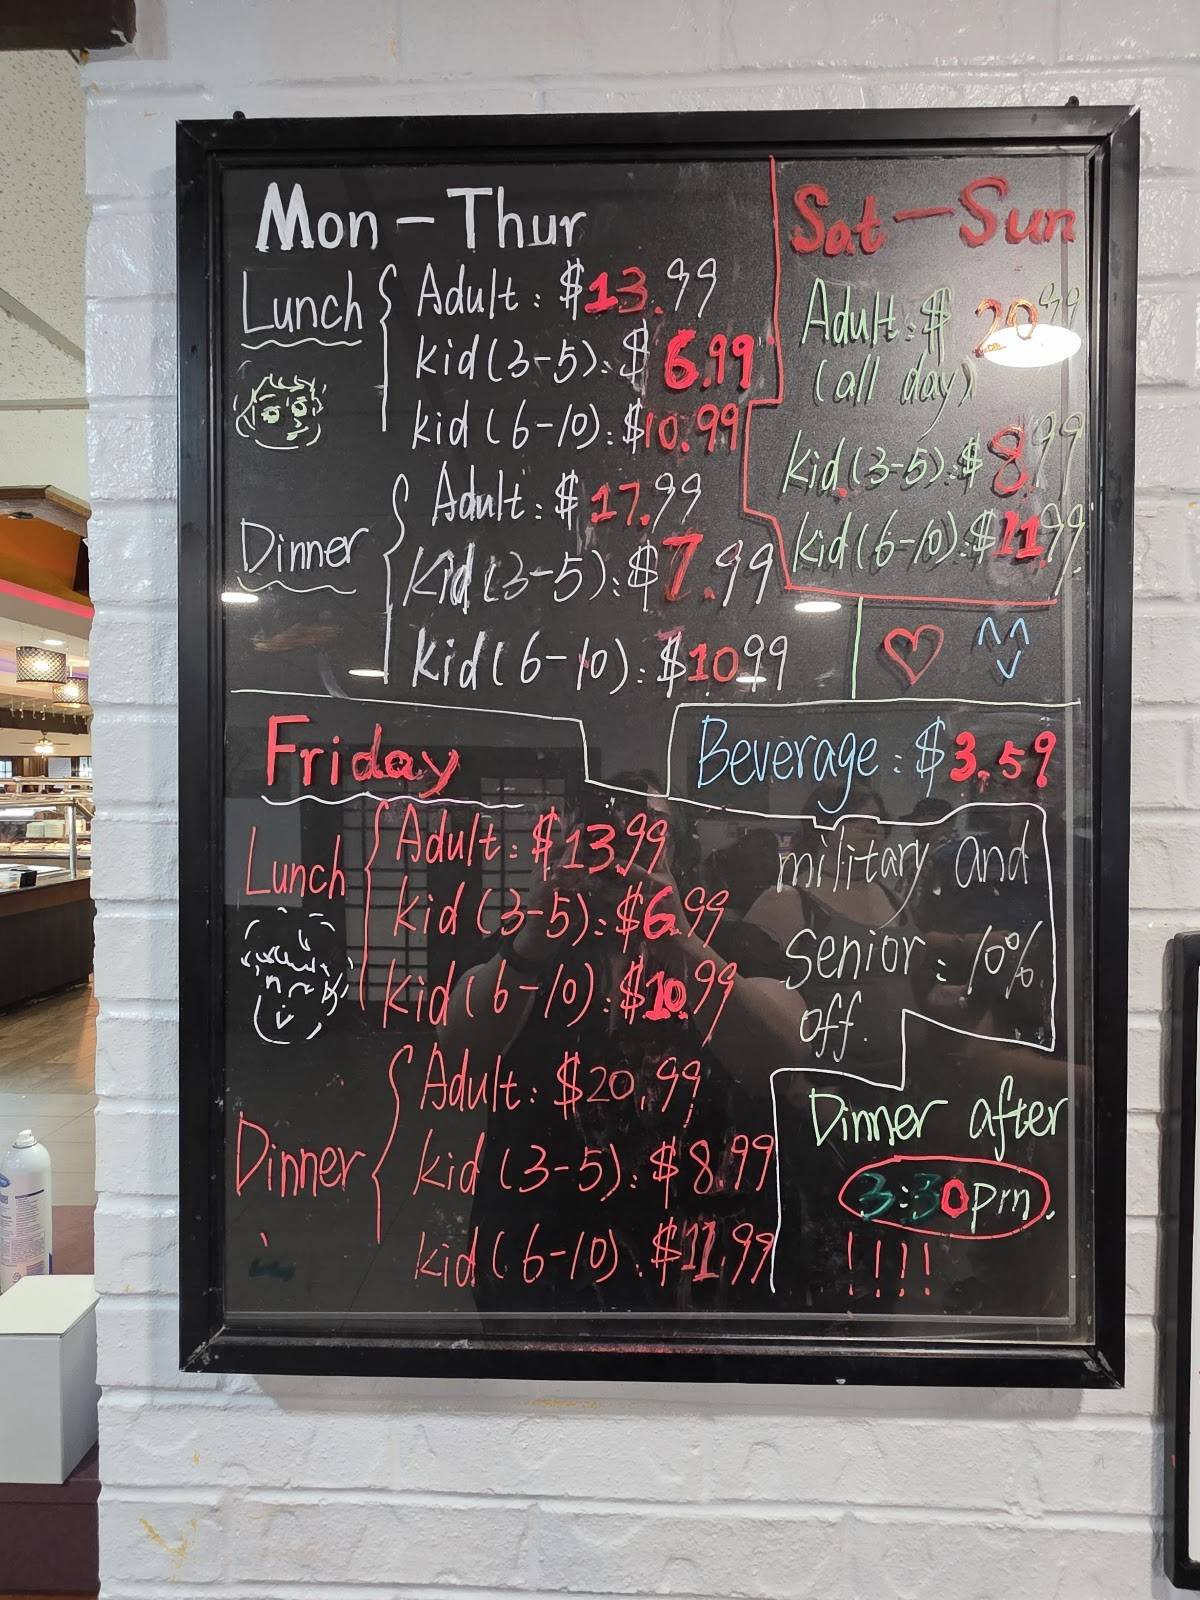 Mon-Thur
Lunch
Adult: $13.99
kid (3-5): $6.99
kid (6-10): $10.99
Dinner
Adult: $17.99
Kid (3-5): $7.99
kid (6-10): $1099
Sat-Sun
Adult: $20.99
(all day)
Kid (3-5): $8.99
Kid (6-10): $11.99
Beverage: $3.59
Friday
Lunch
Adult: $13.99
kid (3-5): $6.99
kid (6-10): $10.99
Dinner
Adult: $20.99
kid (3-5): $8.99
kid (6-10): $11.99
military and
senior: 10%
off.
Dinner after
3:30pm.
!!!!